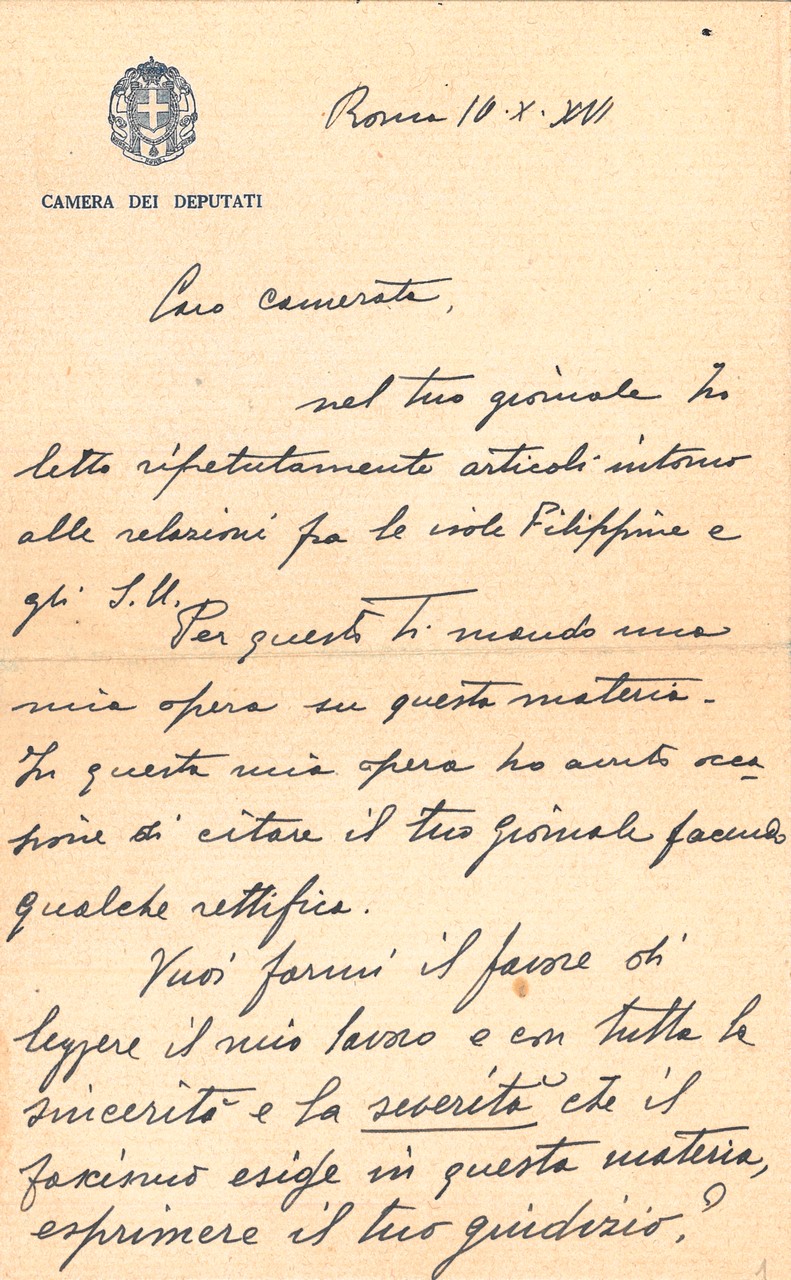 Roma 10.X.XVI
CAMERA DEI DEPUTATI
Caro camerata,
nel tuo giornale ho
letto ripetutamente articoli intorno
alle relazioni fra le isole Filippine e
gli S.U.
Per questo ti mando una
mia opera su questa materia.
In questa mia opera ho avuto occa
sione di citare il tuo giornale facendo
qualche rettifica.
Vuoi farmi il favore di
leggere il mio lavoro e con tutta la
sincerità e la severità che il
fascismo esige in questa materia,
esprimere il tuo giudizio?